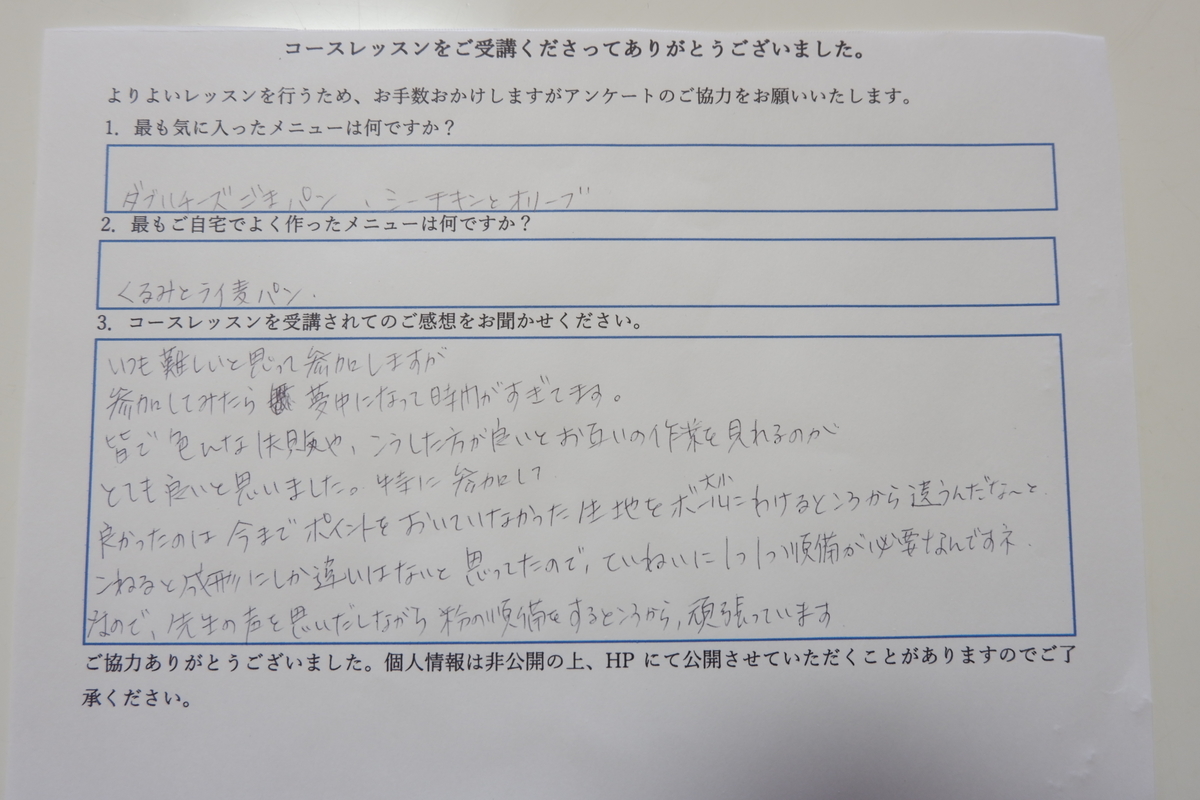 コースレッスンをご受講くださってありがとうございました。
よりよいレッスンを行うため、お手数おかけしますがアンケートのご協力をお願いいたします。
1. 最も気に入ったメニューは何ですか？
ダブルチーズごまパン 、シーチキンとオリーブ
2. 最もご自宅でよく作ったメニューは何ですか？
くるみとライ麦パン.
3. コースレッスンを受講されてのご感想をお聞かせください。
いつも難しいと思って参加しますが
参加してみたら 夢中になって時間がすぎてます。
皆で色んな失敗や、こうした方が良いとお互いの作業を見れるのが
とても良いと思いました。特に参加して
大小
良かったのは今までポイントをおいていなかった生地をボールにわけるところから違うんだな〜と
こねると成形にしか違いはないと思ってたので、ていねいに1つ1つ順備が必要なんですネ.
なので、先生の声を思いだしながら粉の順備をするところから、頑張っています
ご協力ありがとうございました。個人情報は非公開の上、HP にて公開させていただくことがありますのでご了
承ください。